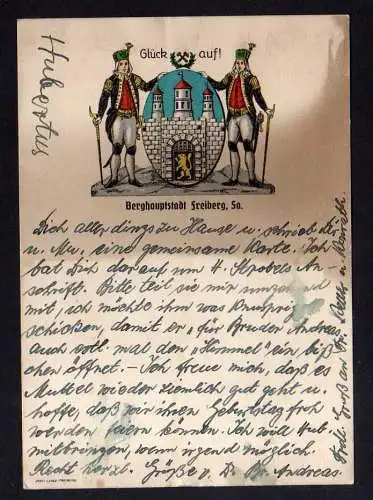 Glück auf!
Hubertus
Berghauptstadt Freiberg, Sa.
Dich allerdings zu Hause u. schrieb dir
u. Mu. eine gemeinsame Karte. Ich
bat Dich darauf um H. Strobels An-
schrift. Bitte teil sie mir umgehend
mit, ich möchte ihm was
schicken, damit er „für Bruder Andreas
auch voll. mal den „Himmel" ein biß-
chen öffnet. – Ich freue mich, daß es
Muttel wieder ziemlich gut geht u.
hoffe, daß wir ihren Geburtstag froh
werden feiern können. Ich will Hub.
mitbringen, wenn irgend möglich.
Recht herzl. Grüße v. D. Br. Andreas.
Gruß an Frl. u.